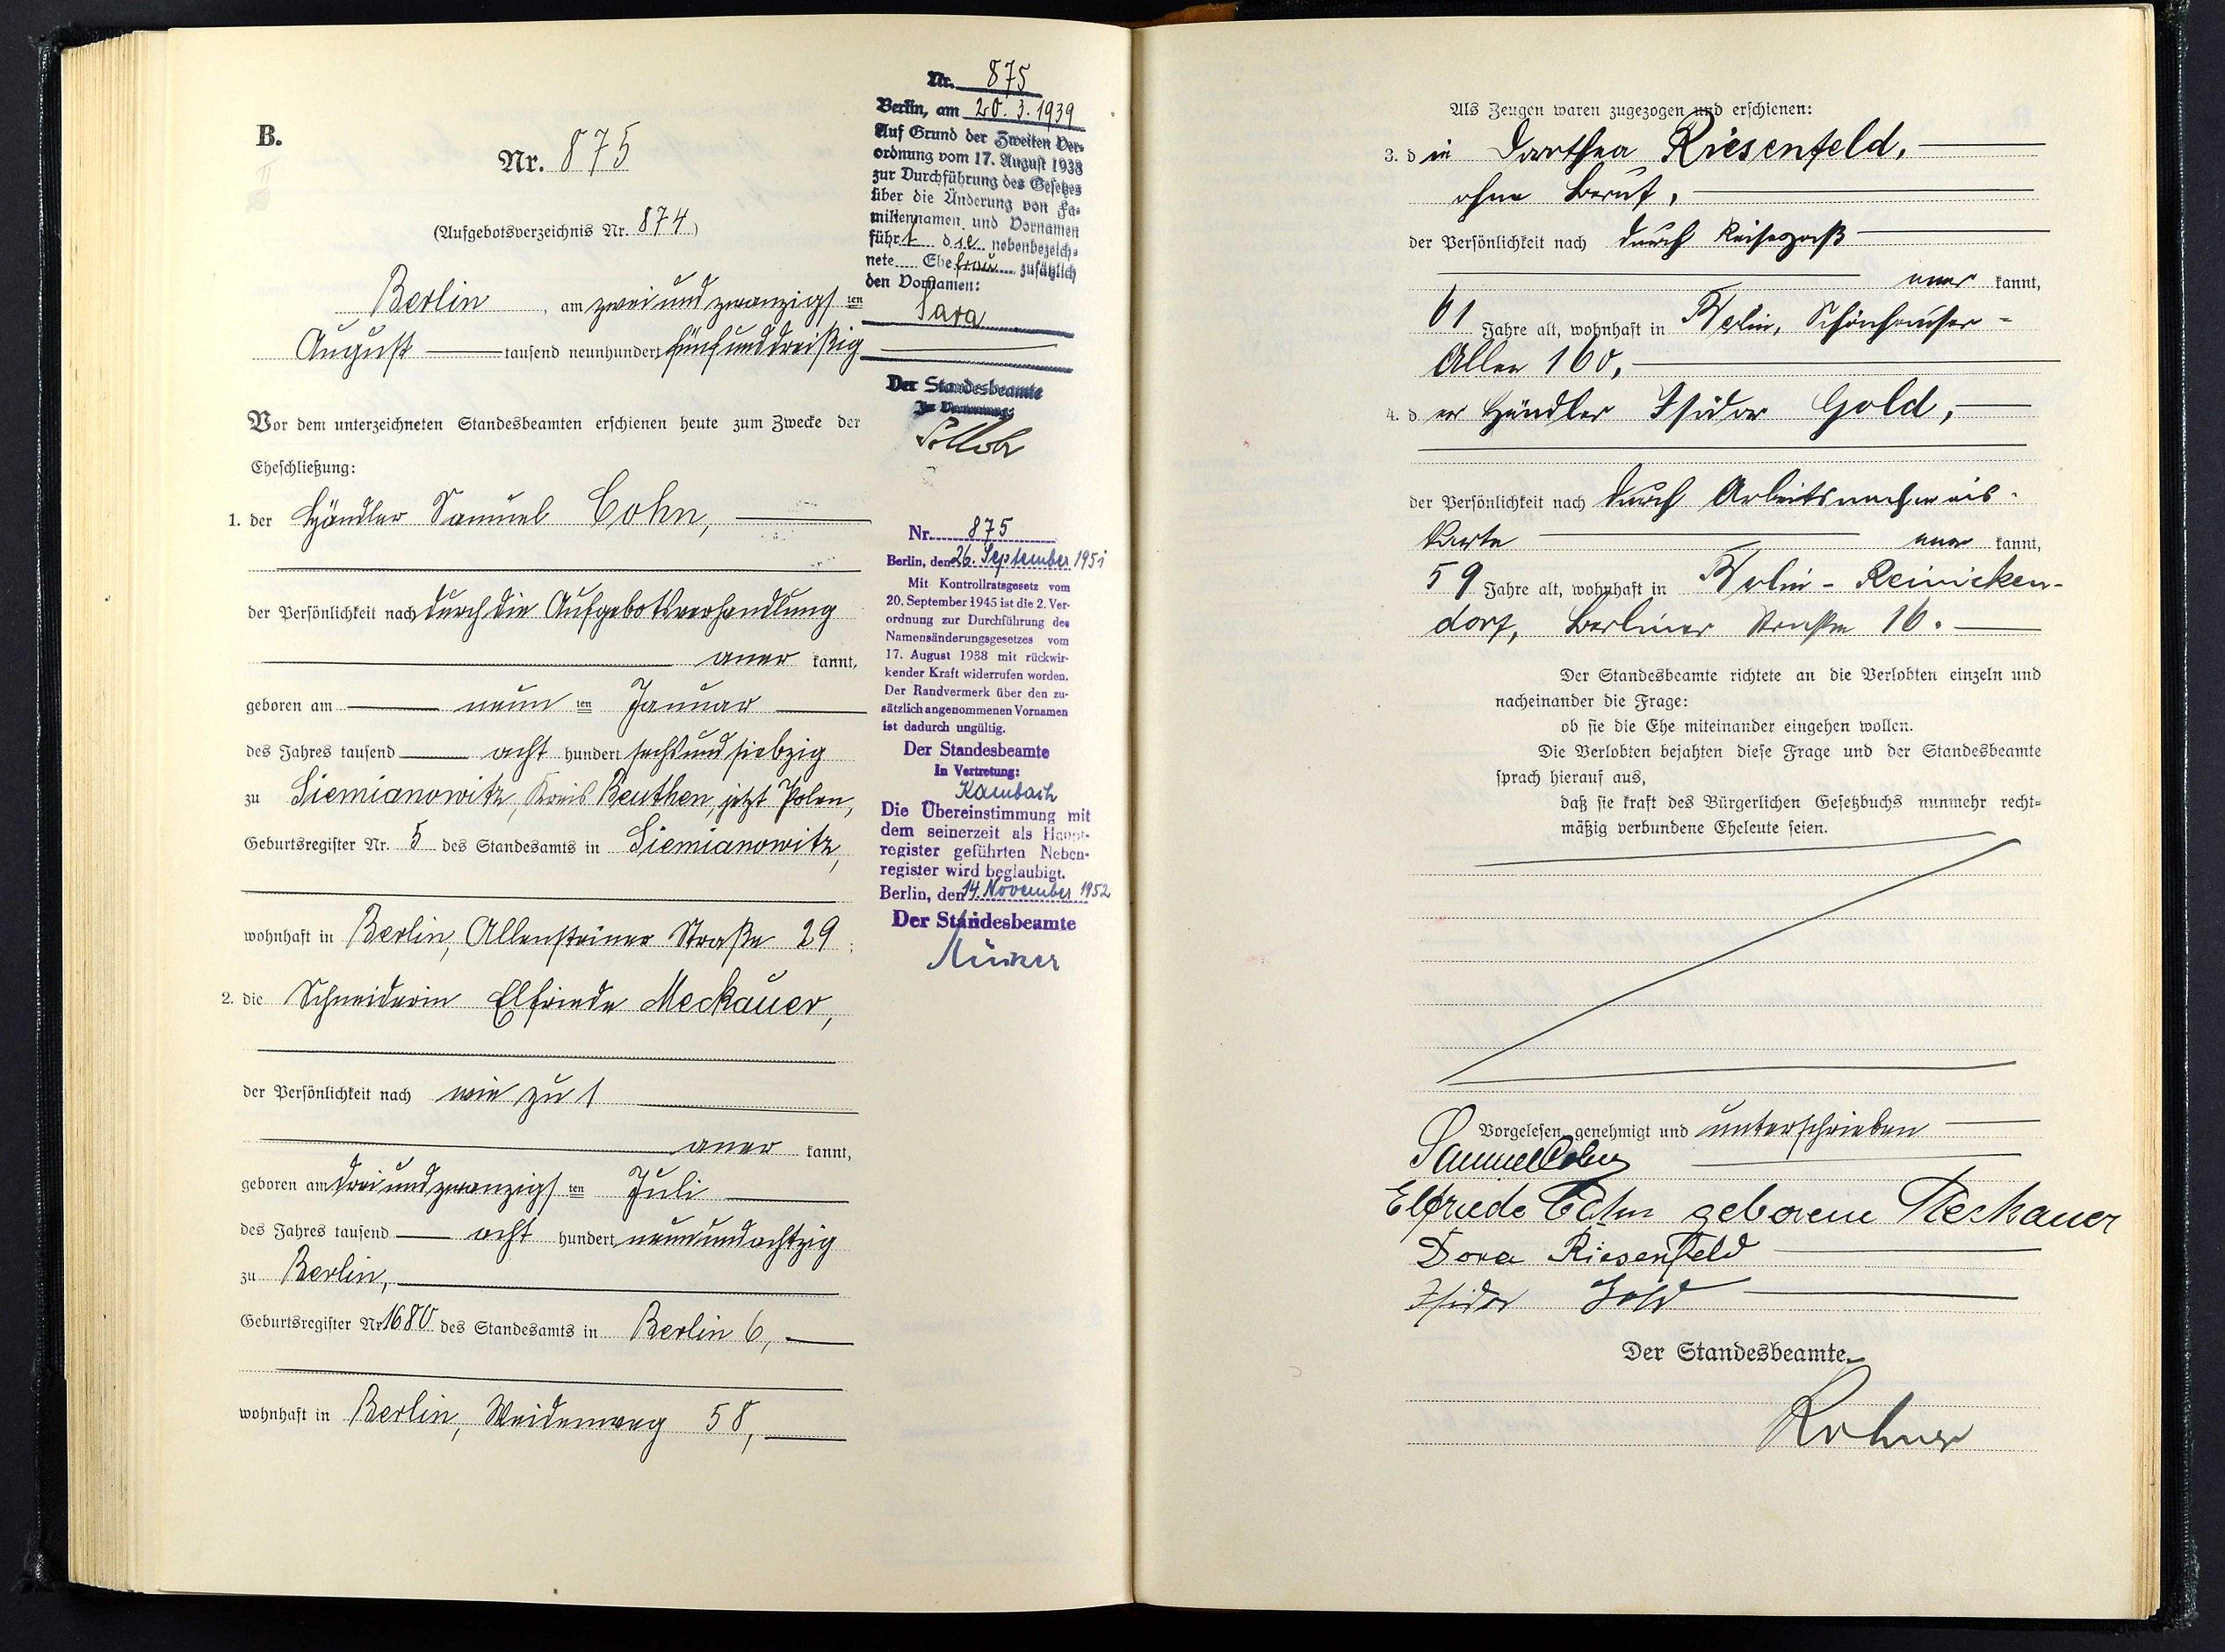 B.
Nr. 875
(Aufgebotsverzeichnis Nr. 874)
Berlin, am zweiundzwanzigsten
August tausend neunhundert fünfunddreißig
Vor dem unterzeichneten Standesbeamten erschienen heute zum Zwecke der
Eheschließung:
1. der Händler Samuel Cohn,
der Persönlichkeit nach durch die Aufgebotsverhandlung
aner kannt,
geboren am neunten Januar
des Jahres tausend acht hundert sechsundsiebzig
zu Siemianowitz, Kreis Beuthen, jetzt Polen,
Geburtsregister Nr. 5 des Standesamts in Siemianowitz,
wohnhaft in Berlin, Allensteiner Straße 29;
2. die Schneiderin Elfriede Meckauer,
der Persönlichkeit nach wie zu 1
aner kannt,
geboren am dreiundzwanzigsten Juli
des Jahres tausend acht hundert neunundachtzig
zu Berlin,
Geburtsregister Nr. 1680 des Standesamts in Berlin 6,
wohnhaft in Berlin, Weidenweg 58,
Nr. 875
Berlin, am 20. 3. 1939
Auf Grund der Zweiten Ver-
ordnung vom 17. August 1938
zur Durchführung des Gesetzes
über die Änderung von Fa-
miliennamen und Vornamen
führt die nebenbezeich-
nete Ehefrau zusätzlich
den Vornamen:
Sara
Der Standesbeamte
In Vertretung:
Nr. 875
Berlin, den 26. September 1951
Mit Kontrollratsgesetz vom
20. September 1945 ist die 2. Ver-
ordnung zur Durchführung des
Namensänderungsgesetzes vom
17. August 1938 mit rückwir-
kender Kraft widerrufen worden.
Der Randvermerk über den zu-
sätzlich angenommenen Vornamen
ist dadurch ungültig.
Der Standesbeamte
In Vertretung:
Kambach
Die Übereinstimmung mit
dem seinerzeit als Haupt-
register geführten Neben-
register wird beglaubigt.
Berlin, den 14. November 1952
Der Standesbeamte
Als Zeugen waren zugezogen und erschienen:
3. die Dorothea Riesenfeld,
ohne Beruf,
der Persönlichkeit nach durch Reisepaß
aner kannt,
61 Jahre alt, wohnhaft in Berlin, Schönhauser-
Allee 160,
4. der Händler Isidor Gold,
der Persönlichkeit nach durch Arbeitsnachweis-
karte aner kannt,
59 Jahre alt, wohnhaft in Berlin-Reinicken-
dorf, Berliner Straße 16.
Der Standesbeamte richtete an die Verlobten einzeln und
nacheinander die Frage:
ob sie die Ehe miteinander eingehen wollen.
Die Verlobten bejahten diese Frage und der Standesbeamte
sprach hierauf aus,
daß sie kraft des Bürgerlichen Gesetzbuchs nunmehr recht-
mäßig verbundene Eheleute seien.
Vorgelesen, genehmigt und unterschrieben
Samuel Cohn
Elfriede Cohn geborene Meckauer
Dora Riesenfeld
Isidor Gold
Der Standesbeamte.